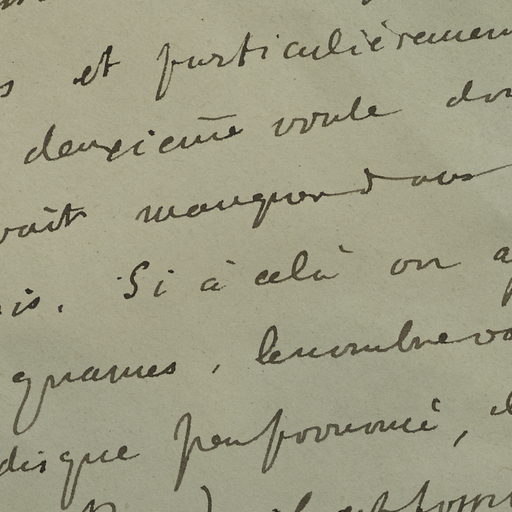 s et particulièremen
deuxième voule don
vait manquer dans
is. Si à celà on a
ignames, le nombre vo
disque peu prononcé,